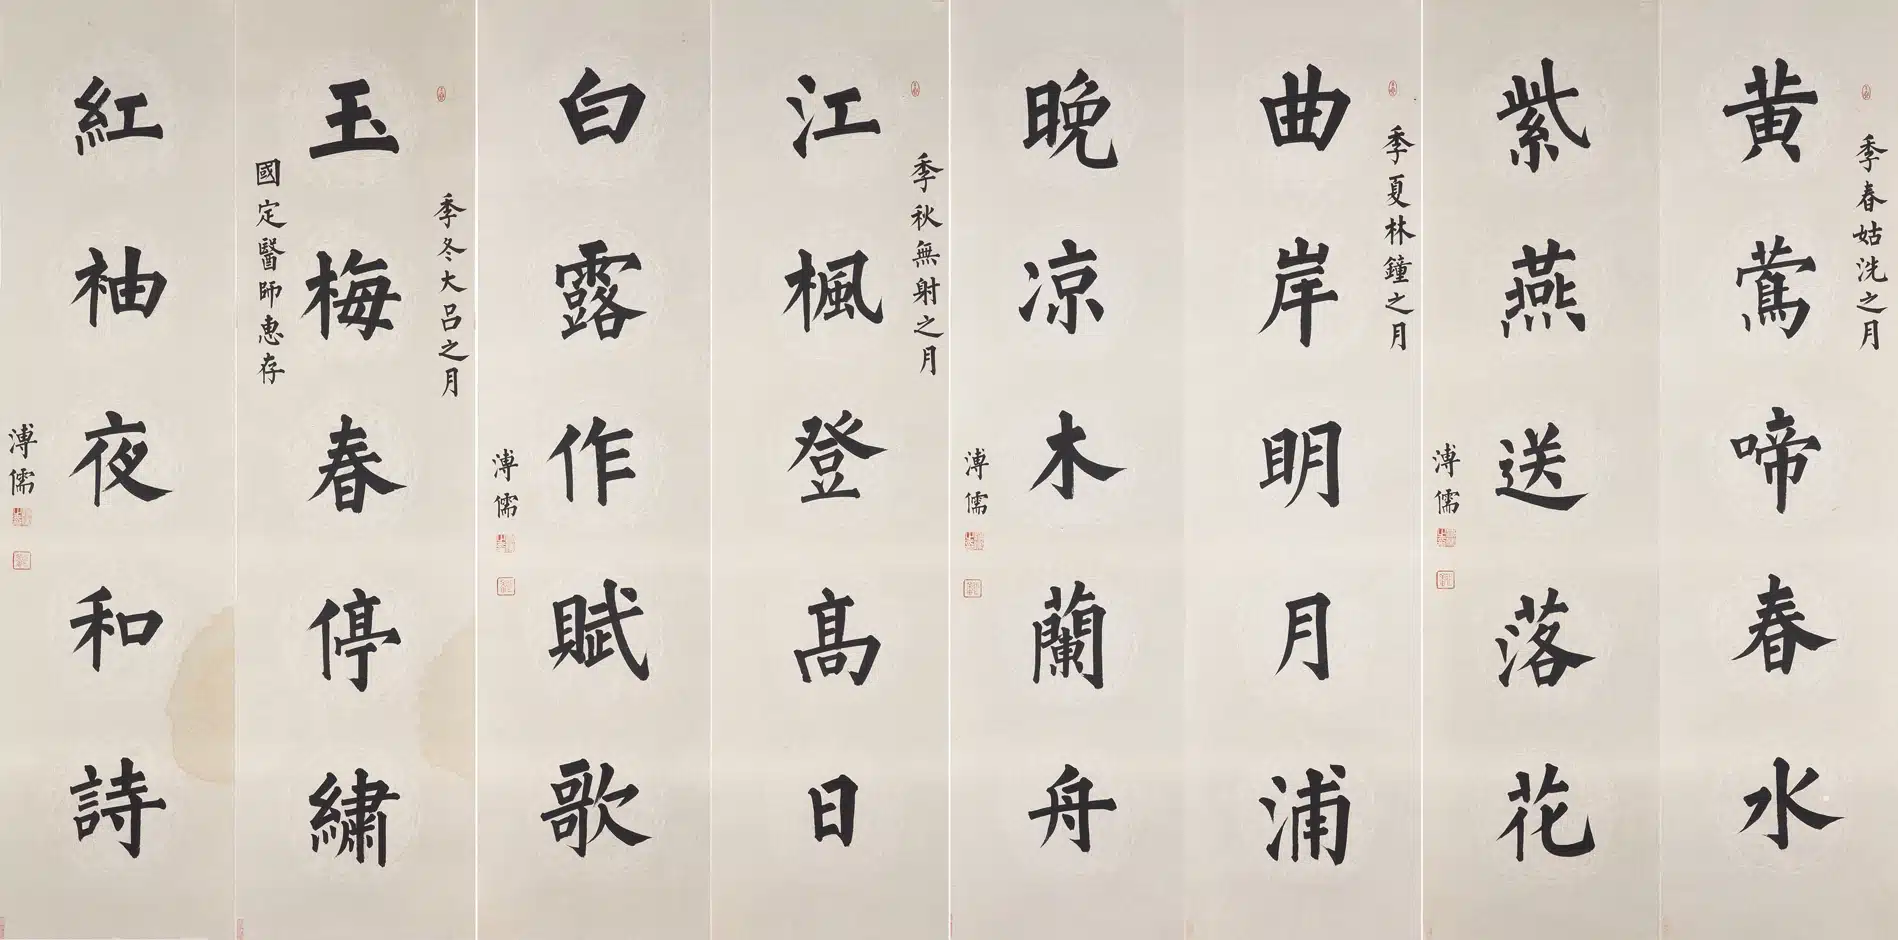 季春姑洗之月
黄鶯啼春水
紫燕送落花
溥儒
季夏林鐘之月
曲岸明月浦
晚凉木蘭舟
溥儒
季秋無射之月
江楓登高日
白露作賦歌
溥儒
季冬大呂之月
玉梅春停繡
國定醫師惠存
紅袖夜和詩
溥儒